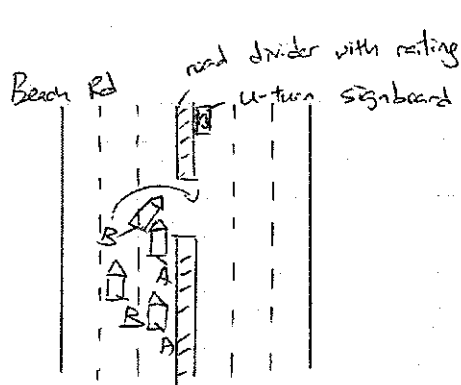 road divider with railing
Beach Rd
U-turn signboard
B
A
B
A